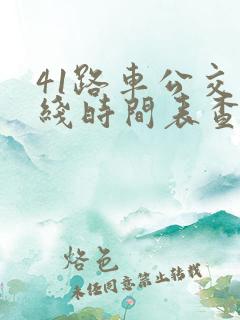 41路車公交
綫時間表查
烙色
未经同意禁止转载